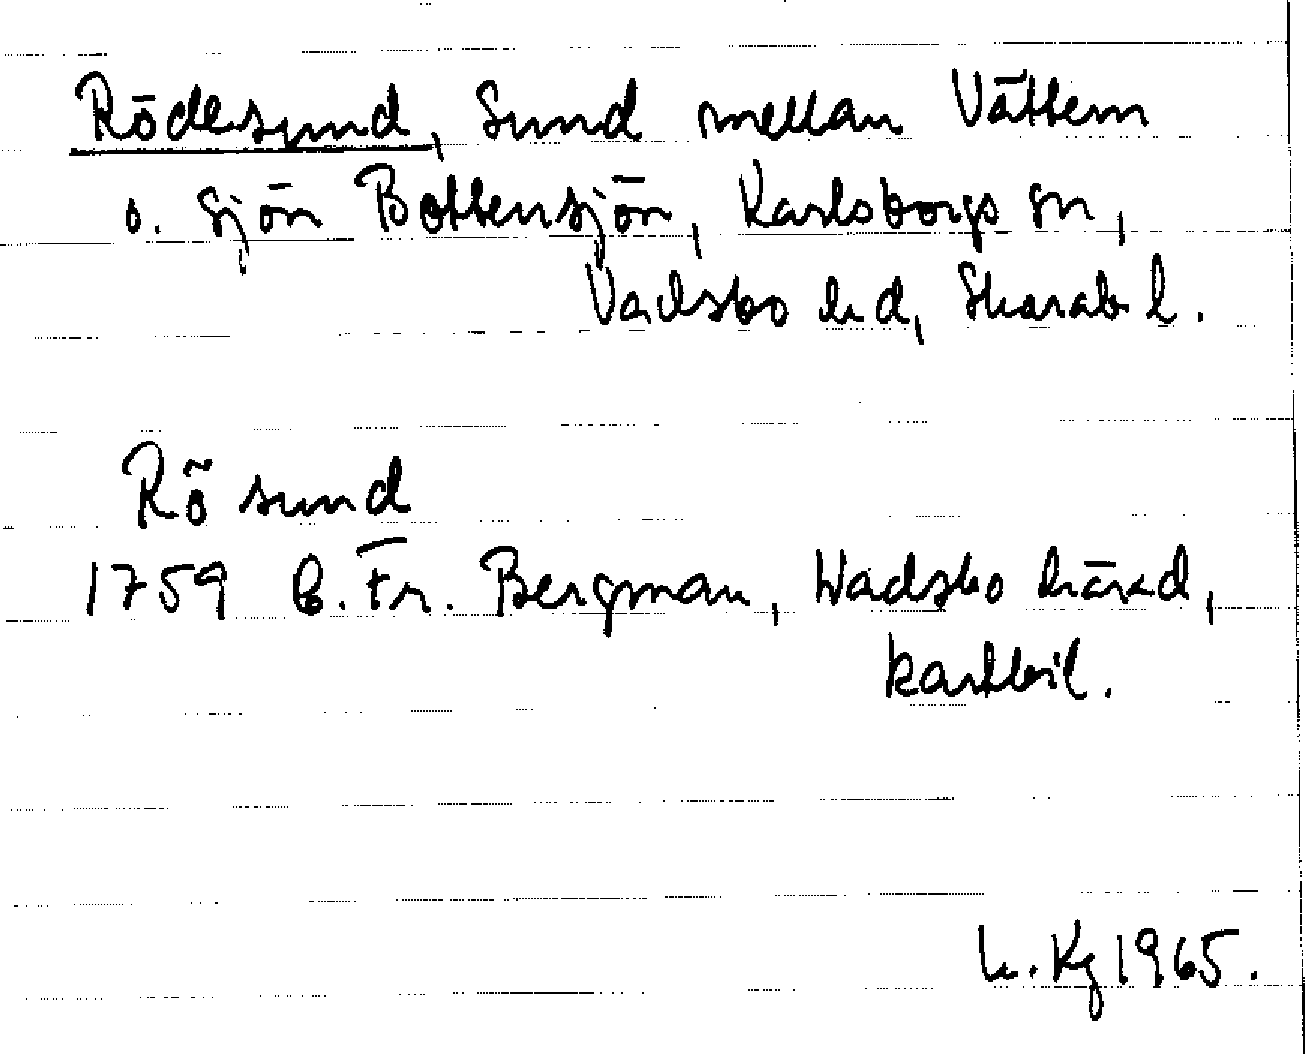 Rödesund, Sund mellan Vättern
o. sjön Bottensjön, Karlsborgs sn,
Vadsbo hd, Skarab l.
Rö sund
1759 B. Fr. Bergman, Wadsbo härad,
kartbil.
Kg 1965.